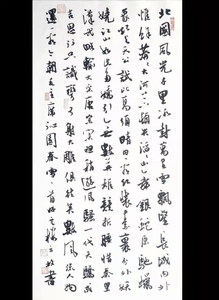 北國風光千里冰封萬里雪飄望長城內外
惟餘莽莽大河上下頓失滔滔山舞銀蛇原馳蠟
象欲與天公試比高須晴日看紅裝素裹分外妖
嬈江山如此多嬌引無數英雄競折腰惜秦皇
漢武略輸文采唐宗宋祖稍遜風騷一代天驕成
吉思汗只識彎弓射大雕俱往矣數風流人物
還看今朝毛主席沁園春雪一首書